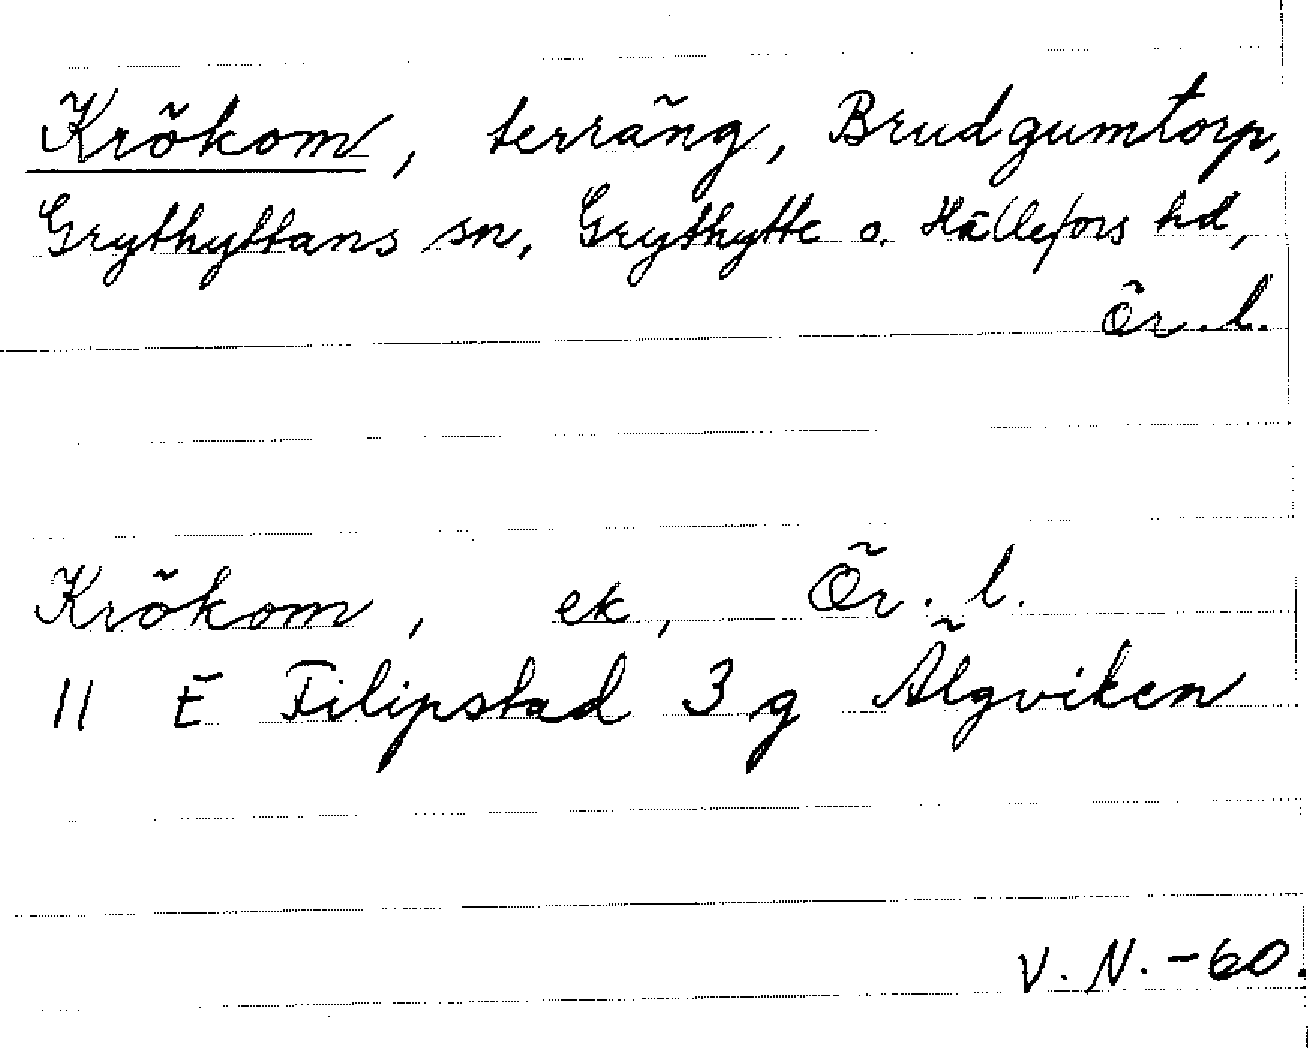 Krökom, terräng, Brudgumtorp,
Grythyttans sn, Grythytte o. Hällefors hd,
Ör. l.
Krökom, ek, Ör. l.
11 E Filipstad 3 g Älgviken
V. N. -60.